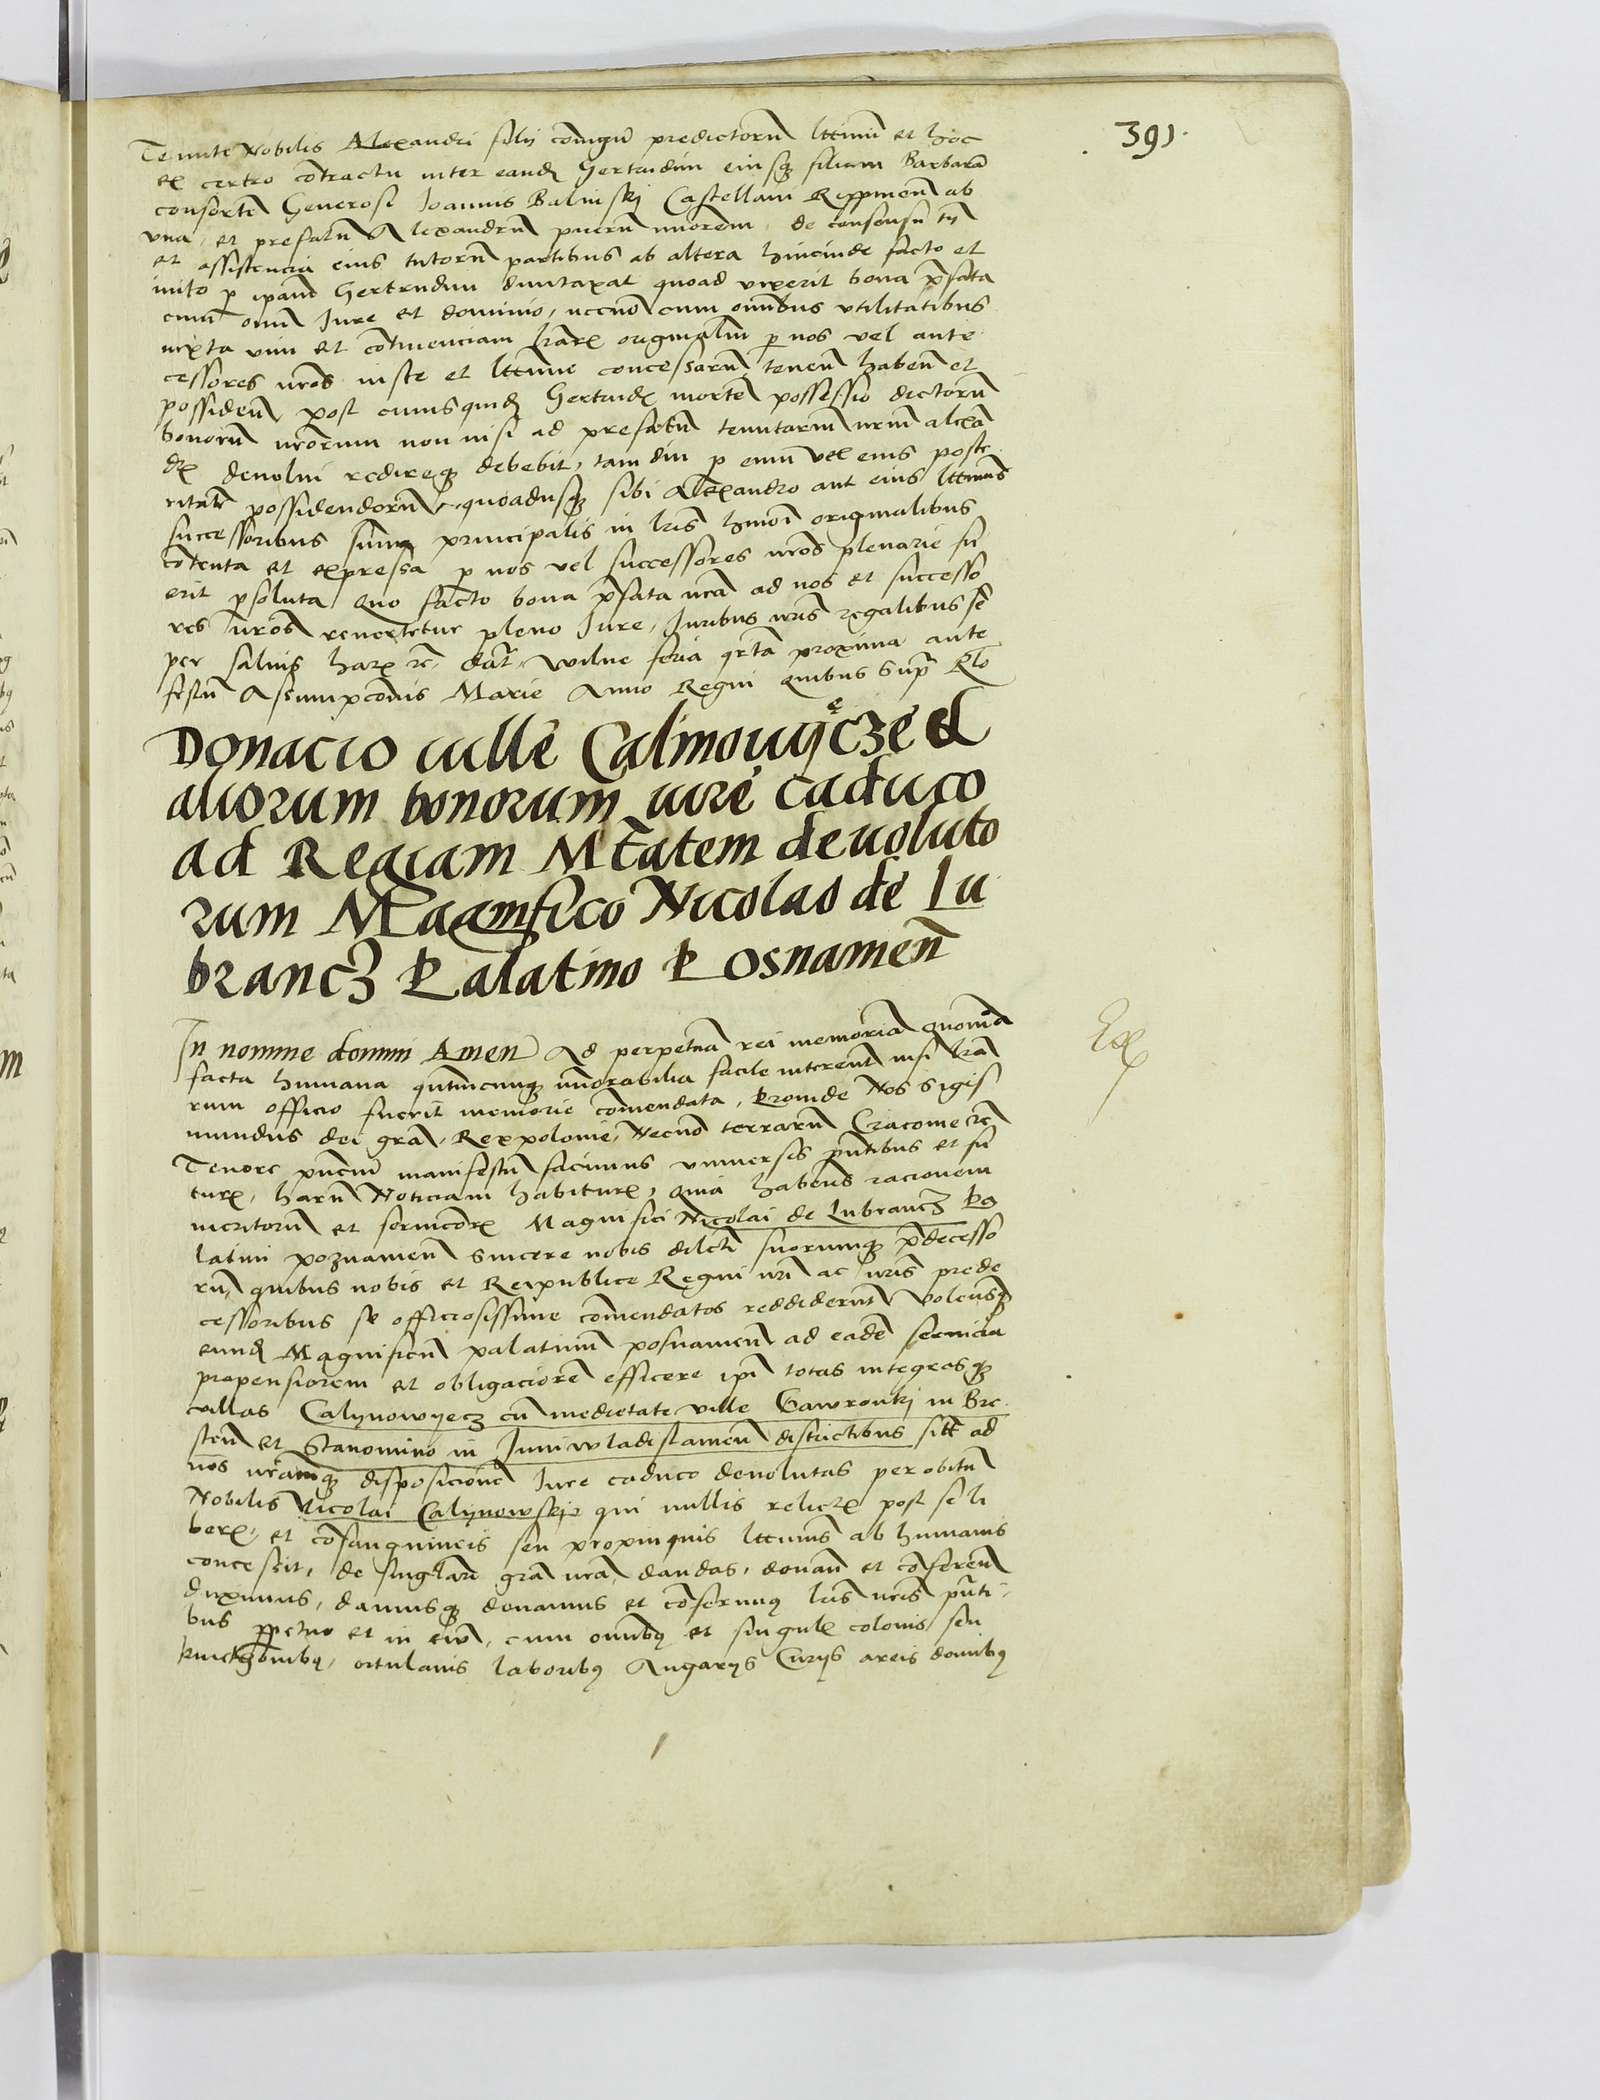 391.
Tenute Nobilis Alexandri filij coniugu predictorū lttimi et hoc
ex certo cōtractu inter eandē Gertrudim eiusq filiam Barbarā
consortē Generosi Joannis Balinskj Castellani Rippinen̄ ab
vna, et prefatū Alexandrū puerū minorem, de consensu tn̄
et assistencia eius tutorū partibus ab altera hincinde facto et
inito p ipam̄ Gertrudim duntaxat quoad vixerit bona p̄fata
cum omi Jure et dominio, necnō cum omībus vtilitatibus
iuxta vim et cōtinenciam lrār originaliū p nos vel ante
cessores nr̄os iuste et lttime concessarū, tenen̄ haben̄ et
possiden̄, post cuiusquidē Gertrudis mortē possessio dictorū
bonorū nr̄orum non nisi ad prefatū tenutariū nr̄m alexā
dr̄ devolui redireq debebit, tam diu p eum vel eius poste
ritatē possidendorū, quoadusq sibi Alexandro aut eius lttimis
successoribus sum̄a principalis in lris hmōi originalibus
cōtenta et expressa p nos vel successores nr̄os plenarie fu
erit p̄soluta Quo facto bona p̄fata nr̄a ad nos et successo
res nr̄os revertetur pleno Jure, Juribus nr̄is regalibus sē
per saluis harr rc̄ dat̄ Wilne feria qr̄ta proxima ante
festū Assumpcōnis Marie Anno Regni Quibus supr̄ Rlo
Donacio ville Calinowyęcze et
aliorum bonorum iure caduco
ad Regiam Mt̄atem devoluto
rum Magnifico Nicolao de Lu
brancz Palatino Posnamen̄
In nomine domini Amen Ad perpetuā rei memoriā Quoniā
facta humana qn̄tumcunq memorabilia facile intereūt nisi lrā
rum officio fuerit memorie cōmendata, Proinde Nos Sigis
mundus dei grā, Rex polonie, Necnō terrarū Cracovie rc̄
Tenore pn̄ciū manifestū facimus vniversis pn̄tibus et fu
turr, harū Noticiam habiturr, Quia habens racionem
meritorū et serviciorr Magnifici Nicolai de Lubrancz Pa
latini poznamen̄ sincere nobis dilcti suorumq p̄decesso
rū, quibus nobis et Reipublice Regni nr̄i ac nr̄is prede
cessoribus se officiosissime cōmendatos reddiderūt volensq
eundē Magnificū palatinū posnamen̄ ad eadē servicia
propensiorem et obligaciorē efficere ipi totas integrasq
villas Calynowyecz cū medietate ville Gawronki in Bre
sten̄ et Stanomino in Juniwladislamen̄ districtibus sitt̄ ad
nos nr̄amq disposicionē Jure caduco devolutas per obitū
Nobilis Nicolai Calynowskj qui nullis relictr post se li
berr, et cōsanguineis seu propinquis lttimis ab humanis
concessit, de singlari grā nr̄a, dandas, donan̄ et cōferen̄
duximus, damusq donamus et cōferimus lris nr̄is pn̄ti-
bus ppetuo et in evū, cum omībq et singulr colonis seu
kmethonibq, ortulanis laboribq Angarijs Curijs areis domibq